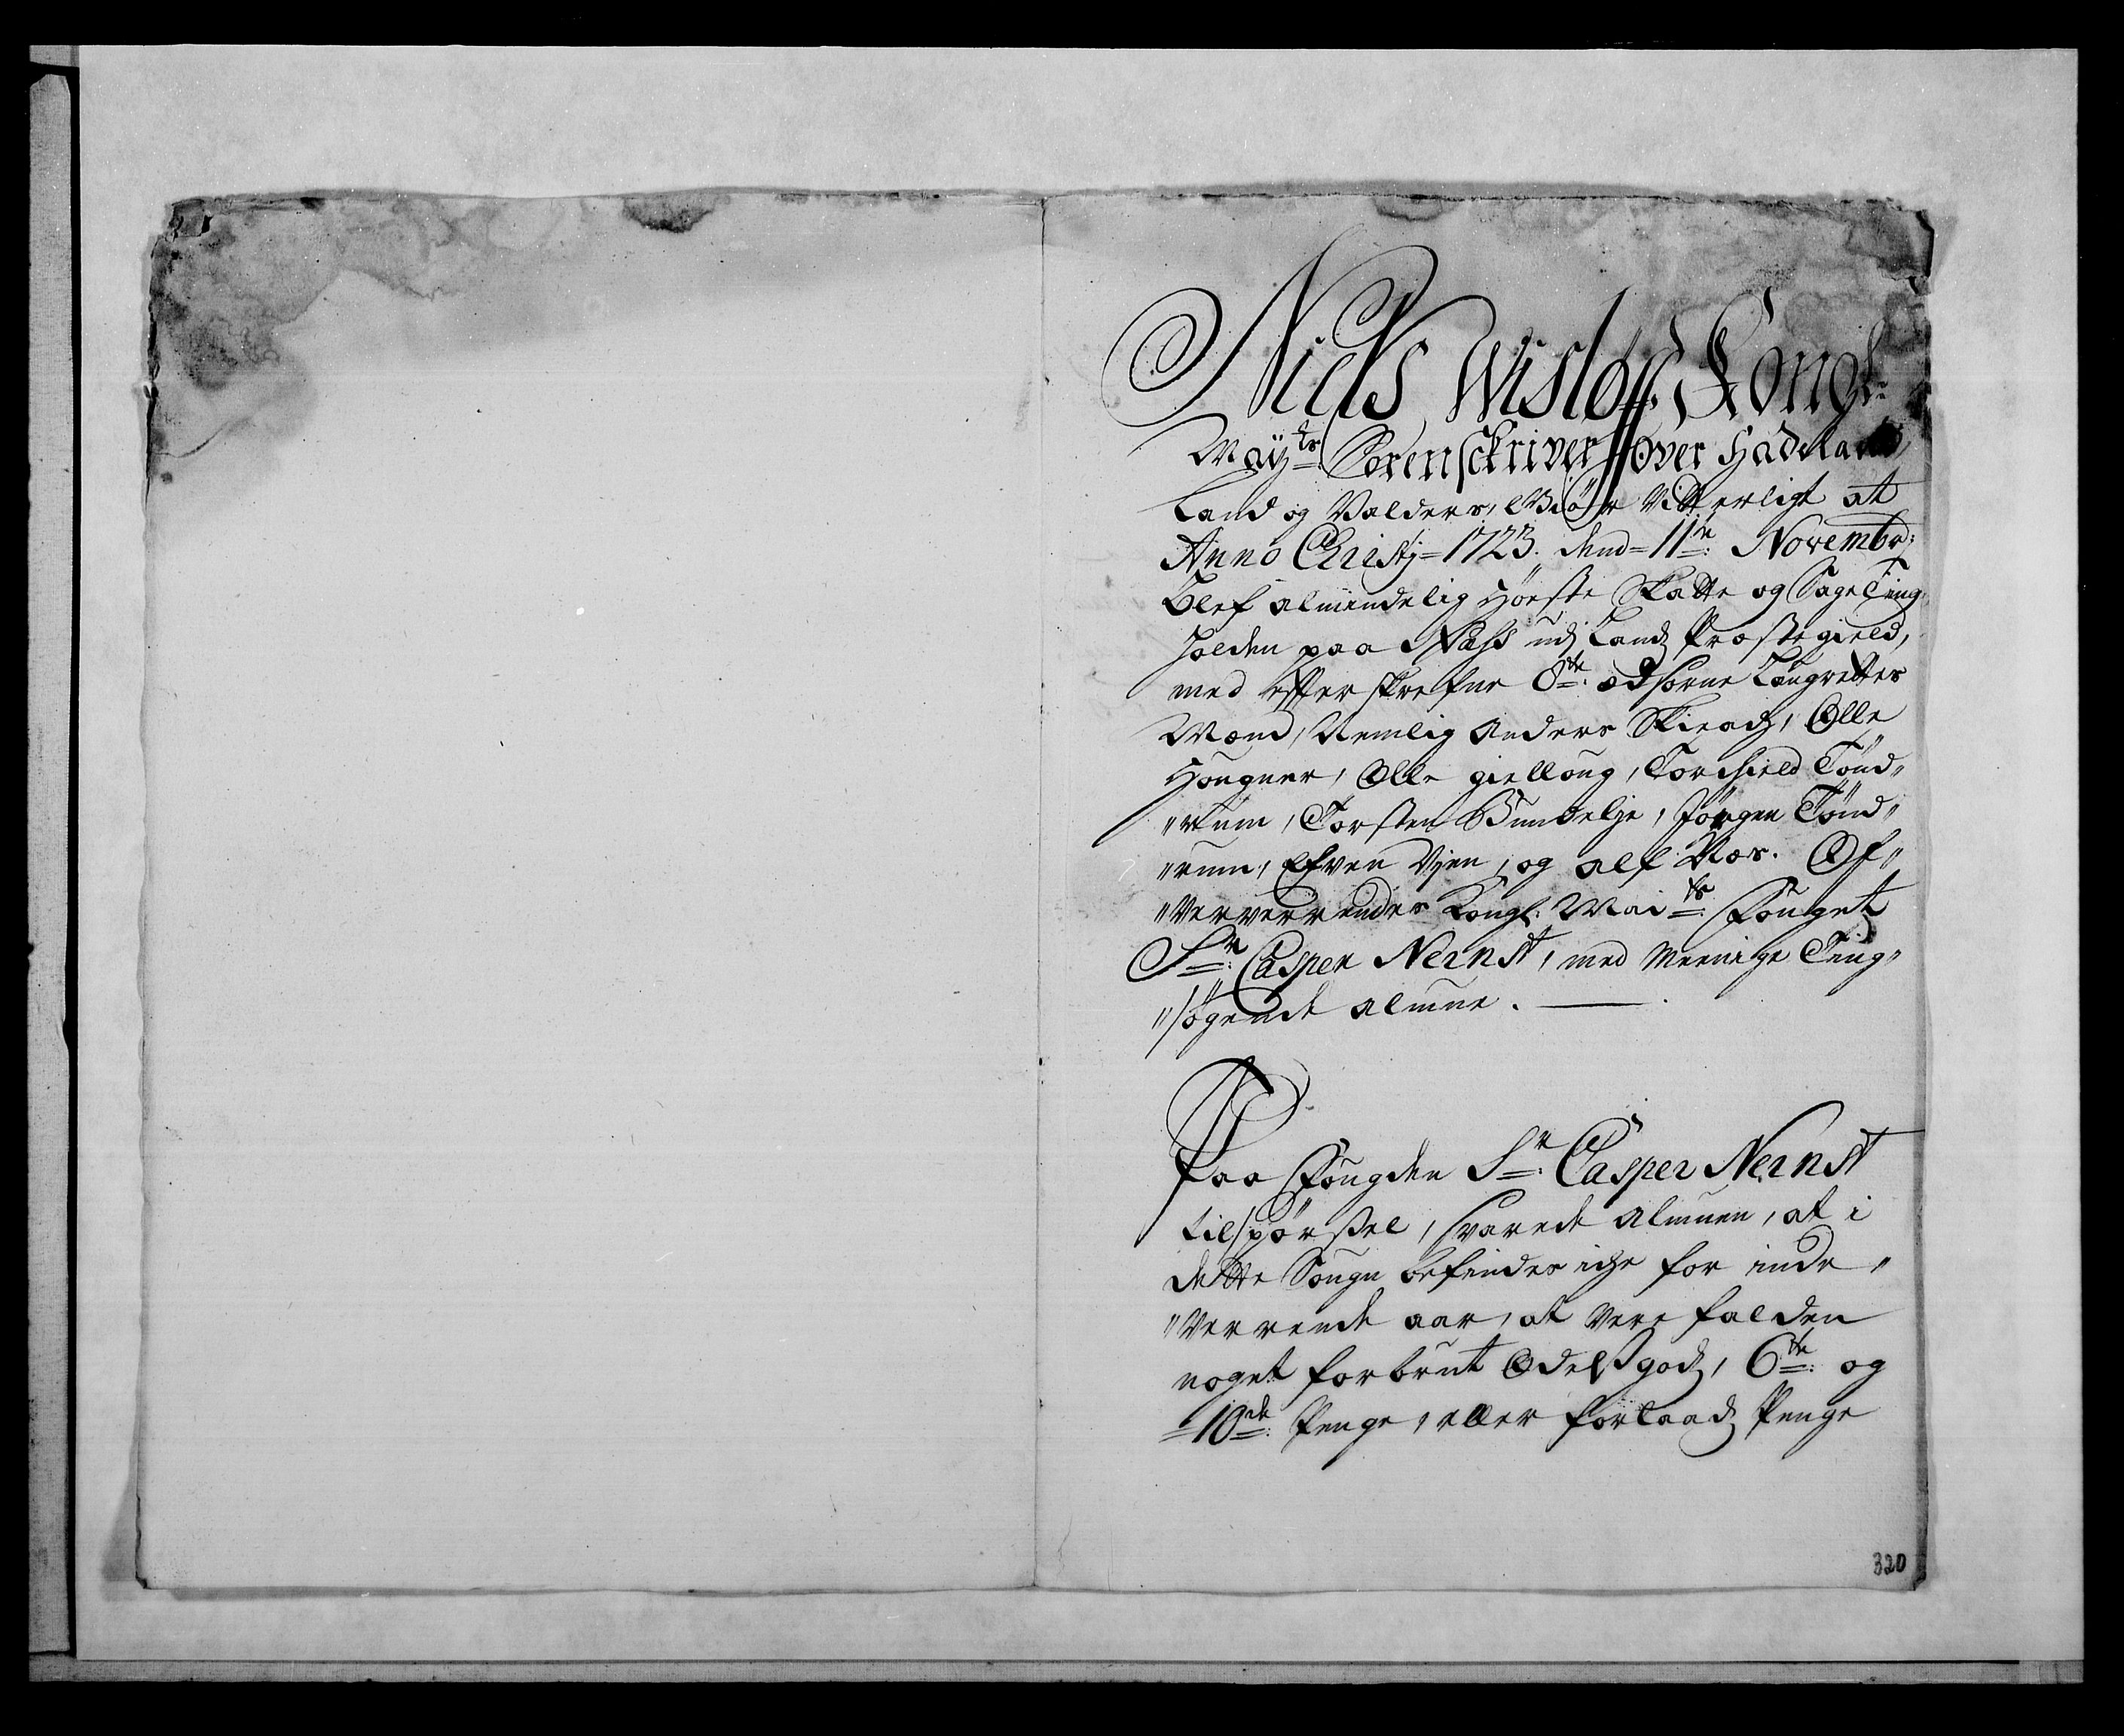 Niels Wisløff, Kongl:
Mayts Sorenschriver over Hadeland
Land og Valders, Giør Vitterligt at
Anno Christj 1723. dend 11te Novembr:
Blef almindelig Høste Skatte og Sage Ting
holden paa Næhs udj Lands Præstegield,
med effterskrefne 8te: Edsorne Laugrettes
Mænd, Nemlig Anders Skiench, Olle
Hougner, Olle gielloug, Torchield Tønd„
„rum, Torsten Bundelje, Jørgen Tønd„
„rum, Efven Vjen, og alf Næs. Of„
„Ververrendes Kongl: Maits Fouget
Sr: Casper Nernst, med Meenige Ting„
„søgende almue.
Paa Fougden Sr: Casper Nernst
tilspørssel, svarede almuen, at i
dette Sougn befindes iche for inde„
„Verrende aar, at Vere falden
noget forbrut Odelssgods, 6te: og
10de: Penge, eller forlaads Penge
320